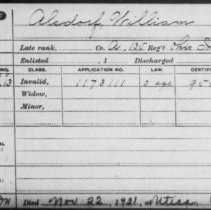 Alsdorf, William
Late rank, Co. A, 135 Reg't
Enlisted , 1 Discharged
CLASS. APPLICATION NO. LAW. CERTI
Invalid, 1173111
Widow,
Minor,
Died Nov. 22, 1921, at Utica